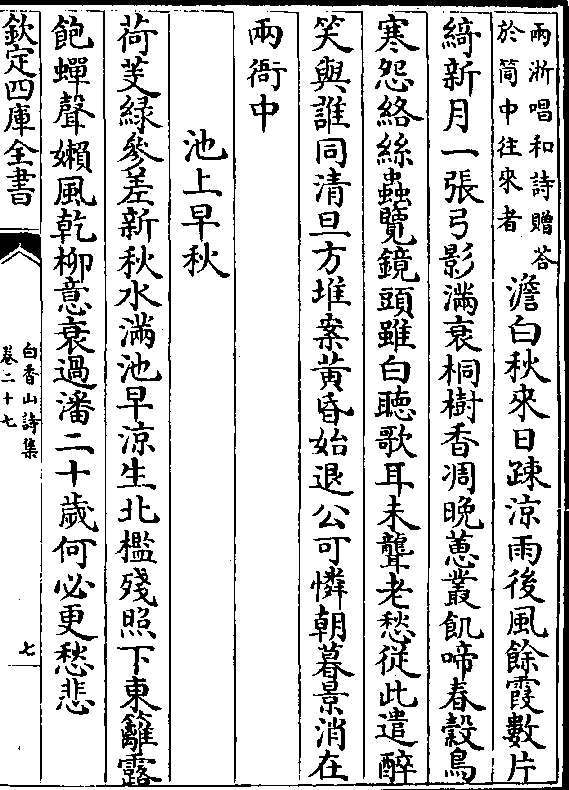 兩浙唱和詩贈答
於筒中往來者
澹白秋來日疎涼雨後風餘霞數片
綺新月一張弓影滿衰桐樹香凋晚蕙叢飢啼春穀鳥
寒怨絡絲蟲覽鏡頭雖白聴歌耳未聾老愁從此遣醉
笑與誰同清旦方堆案黄昏始退公可憐朝暮景消在
兩衙中
池上早秋
荷芰緑參差新秋水滿池早涼生北檻殘照下東籬露
飽蟬聲嬾風乾柳意衰過潘二十歲何必更愁悲
欽定四庫全書
白香山詩集
卷二十七
七